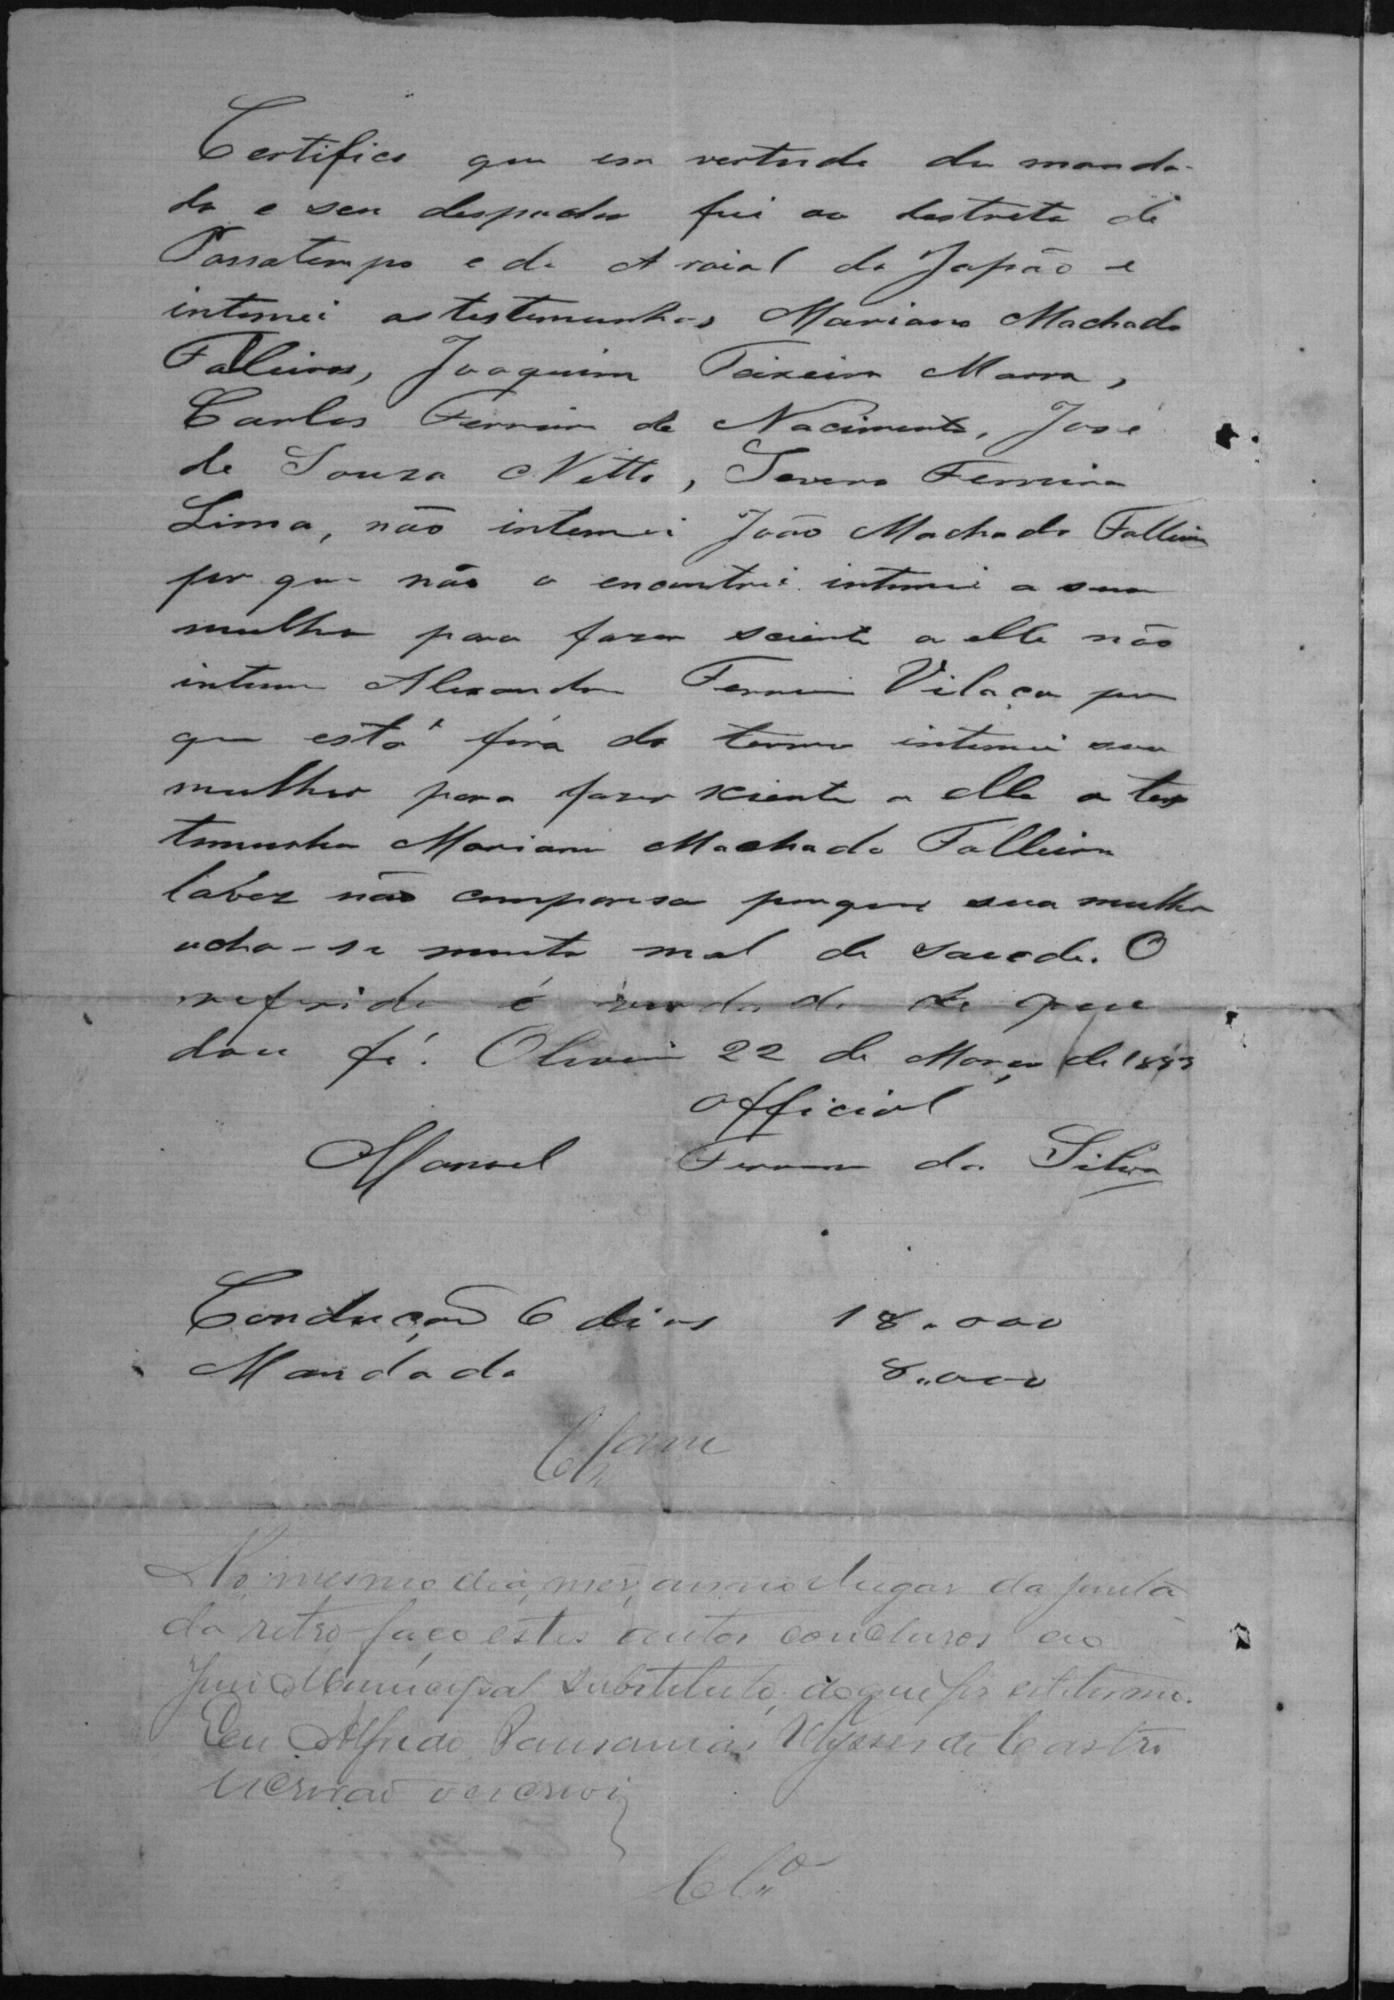 Certifico que em vertude du manda-
do e seu despacho fui ao destreto de
Passatempo e do Arraial do Japão e
intimei as testemunhas Mariano Machado
Falleiros, Joaquim Teixeira Marra,
Carlos Ferreira de Nacimento, José
de Souza Netto, Severo Ferreira
Lima, não intimei João Machado Falleiro
por que não o encontrei intimei a sua
mulher para fazer sciente a elle não
intimei Alexandre Ferreira Vilaça por
que está fóra do termo intimei sua
mulher para fazer sciente a elle a tes
temunha Mariano Machado Falleiro
talvez não compareça porque sua mulher
acha-se muito mal de saude. O
referido é verdade de que
dou fé. Oliveira 22 de Março de
Official
Manoel Ferreira da Silva
Condução 6 dias 18.000
Mandado 8.000
No mesmo dia, mez, anno e lugar da junta
da retro faço estes autos conclusos ao
Juiz Municipal Substituto, do que fiz este termo.
Eu Alfredo Pausanias Ulysses de Castro
escrivão o escrevi
Cl.o